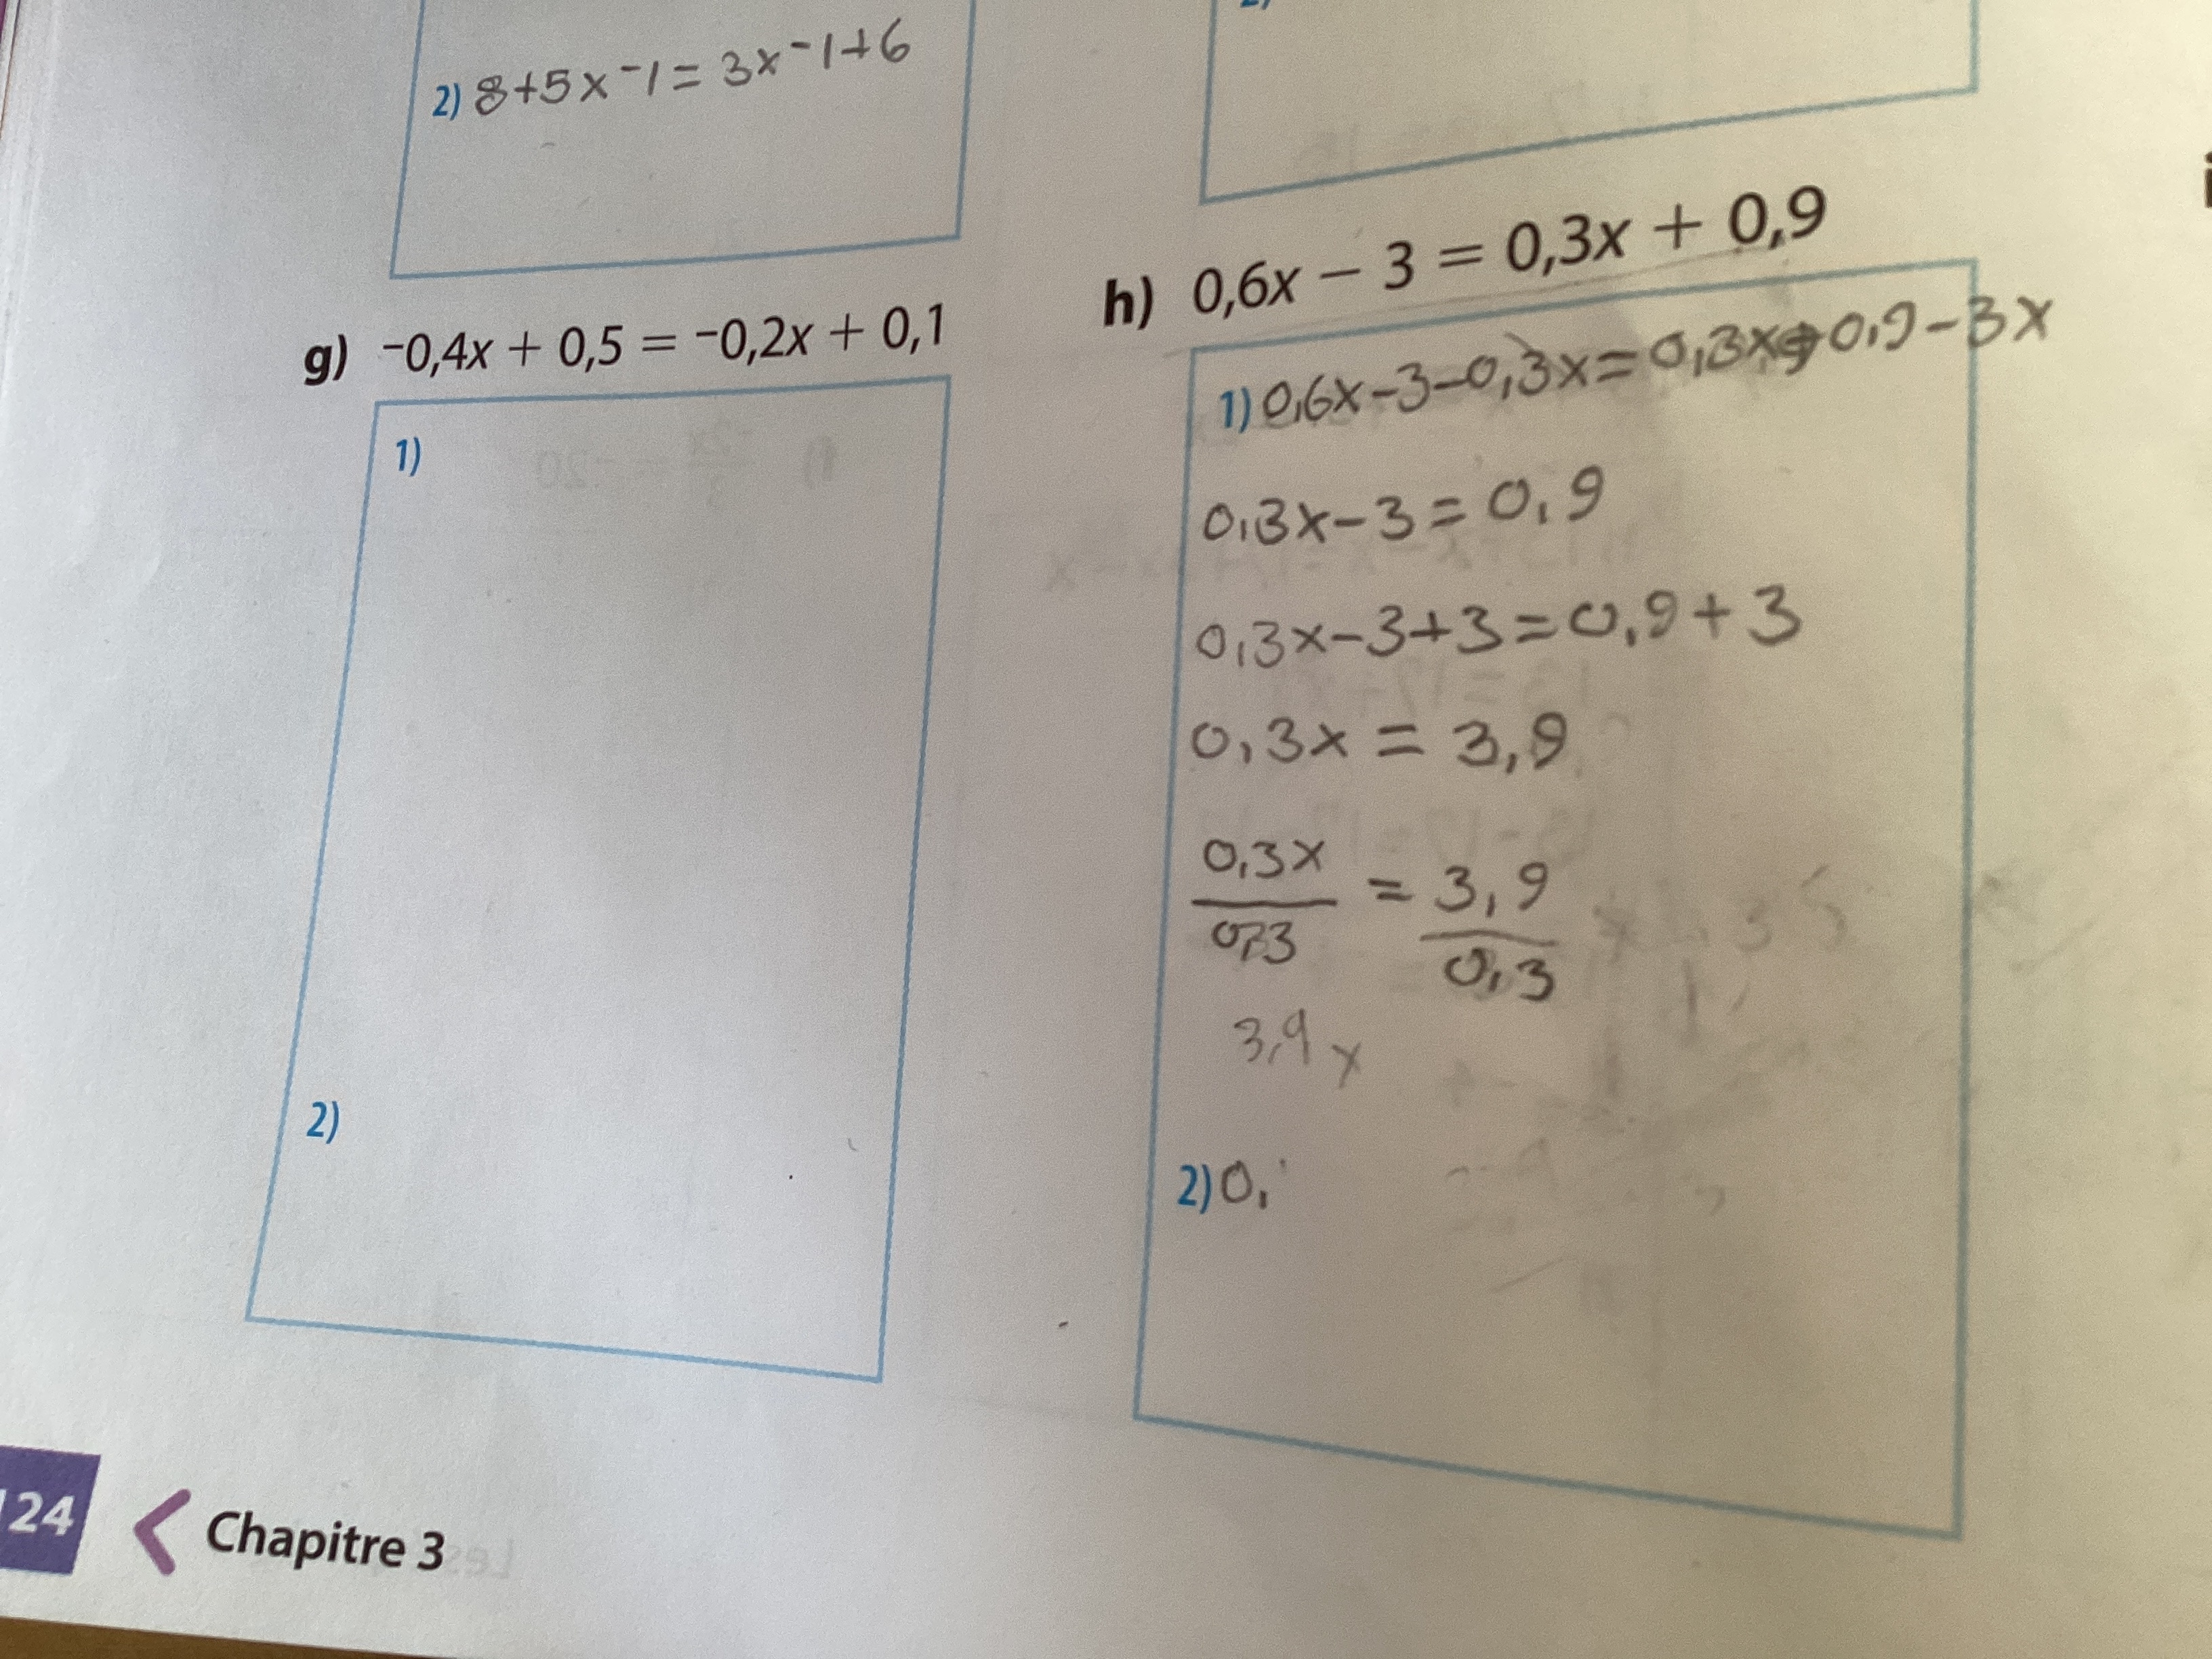 2) 8+5x⁻1=3x⁻1+6
g) ⁻0,4x + 0,5 = ⁻0,2x + 0,1
1)
2)
h) 0,6x − 3 = 0,3x + 0,9
1) 0,6x-3-0,3x=0,3x+0,9-3x
0,3x-3=0,9
0,3x-3+3=0,9+3
0,3x = 3,9
0,3x/0,3 = 3,9/0,3
3,9 x
2) 0,
124 Chapitre 3